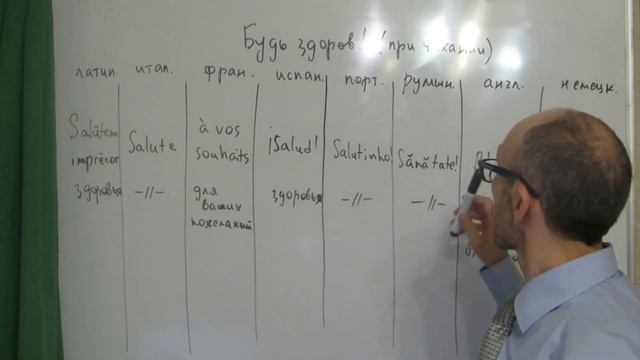 Будь здоров! (при чихании)
латин. итал. фран. испан. порт. румын. англ. немецк.
Salūtem imprĕcor
здоровья
Salute
-//-
à vos souhaits
для ваших пожеланий
¡Salud!
здоровья
Salutinho
-//-
Sănătate!
-//-